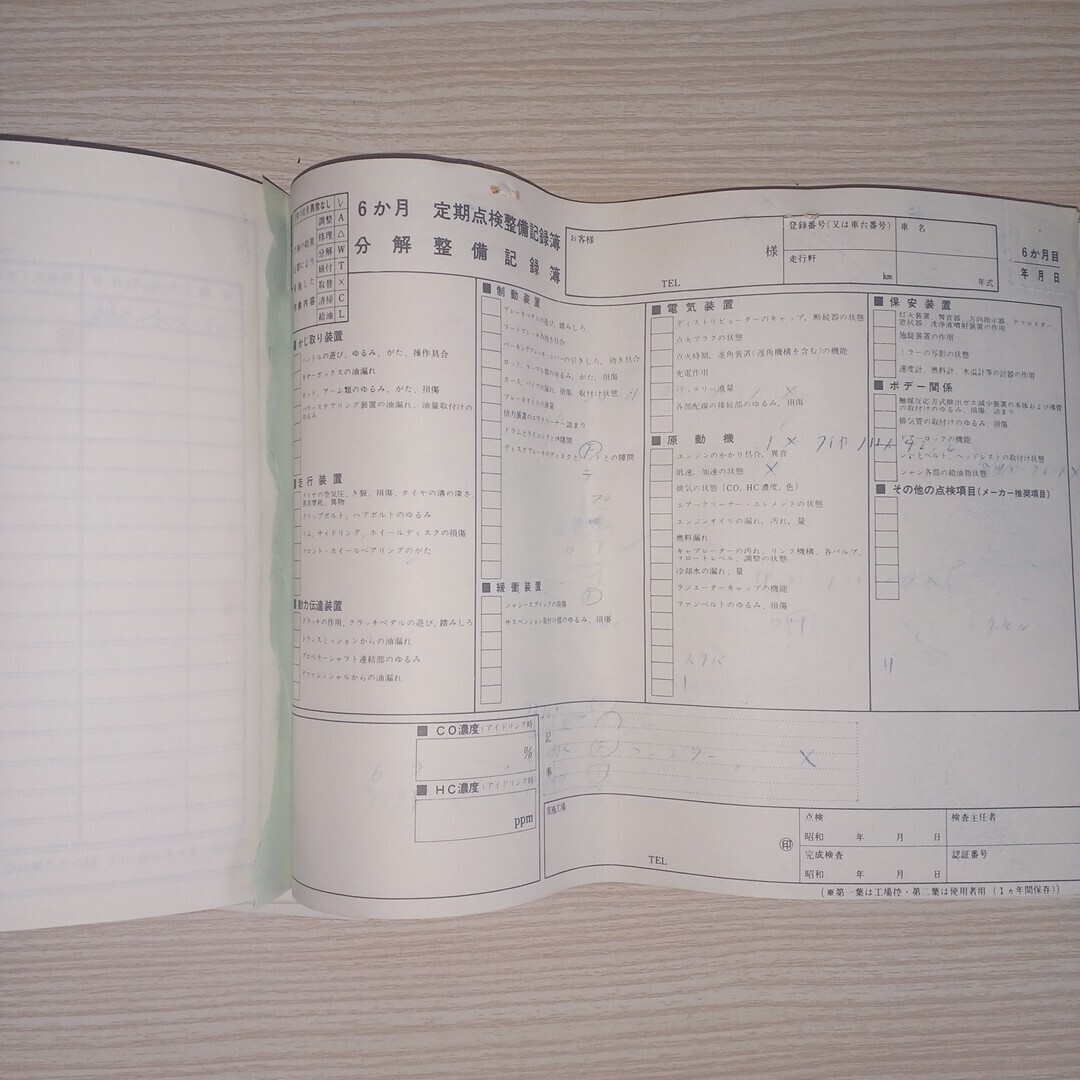 6か月 定期点検整備記録簿
分解整備記録簿
調整 A
修理 △
分解 W
締付 T
取替 ×
清掃 C
給油 L
お客様
様
TEL
登録番号(又は車台番号)
車 名
走行粁
km
年式
6か月目
年 月 日
■ かじ取り装置
ハンドルの遊び、ゆるみ、がた、操作具合
ギヤーボックスの油漏れ
ロッド、アーム類のゆるみ、がた、損傷
パワーステアリング装置の油漏れ、油量取付けの
ゆるみ
■ 走行装置
タイヤの空気圧、き裂、損傷、タイヤの溝の深さ、
クリップボルト、ハブボルトのゆるみ
リム、サイドリング、ホイールディスクの損傷
フロント・ホイールベアリングのがた
■ 動力伝達装置
クラッチの作用、クラッチペダルの遊び、踏みしろ
トランスミッションからの油漏れ
プロペラーシャフト連結部のゆるみ
デファレンシャルからの油漏れ
■ 制動装置
ブレーキペダルの遊び、踏みしろ
フートブレーキの効き具合
パーキングブレーキレバーの引きしろ、効き具合
ロッド、ケーブル類のゆるみ、がた、損傷
ホース、パイプの漏れ、損傷、取付け状態
ブレーキオイルの液量
倍力装置のエアクリーナー詰まり
ドラムとライニングとの隙間
ディスクブレーキのディスクとパットとの隙間
■ 緩衝装置
シャシースプリングの損傷
サスペンション取付け部のゆるみ、損傷
■ 電気装置
ディストリビューターのキャップ、断続器の状態
点火プラグの状態
点火時期、進角装置(遅角機構を含む)の機能
充電作用
バッテリー液量
各部配線の接続部のゆるみ、損傷
■ 原動機
エンジンのかかり具合、異音
低速、加速の状態
排気の状態(CO、HC濃度、色)
エアークリーナー・エレメントの状態
エンジンオイルの漏れ、汚れ、量
燃料漏れ
キャブレーターの汚れ、リンク機構、各バルブ、
フロートレベル、調整の状態
冷却水の漏れ、量
ラジエーターキャップの機能
ファンベルトのゆるみ、損傷
■ 保安装置
灯火装置、警音器、方向指示器、デフロスター、
窓拭器、洗浄液噴射装置の作用
施錠装置の作用
ミラーの写影の状態
速度計、燃料計、水温計等の計器の作用
■ ボデー関係
触媒反応方式排出ガス減少装置の本体および導管
の取付けのゆるみ、損傷、詰まり
排気管の取付けのゆるみ、損傷
ドアーロックの機能
シートベルト、ヘッドレストの取付け状態
シャシ各部の給油脂状態
■ その他の点検項目(メーカー推奨項目)
■ CO濃度(アイドリング時)
%
■ HC濃度(アイドリング時)
ppm
記
事
実施工場
TEL
印
点検
昭和 年 月 日
完成検査
昭和 年 月 日
検査主任者
認証番号
(※第一葉は工場控・第二葉は使用者用(1ヵ年間保存))